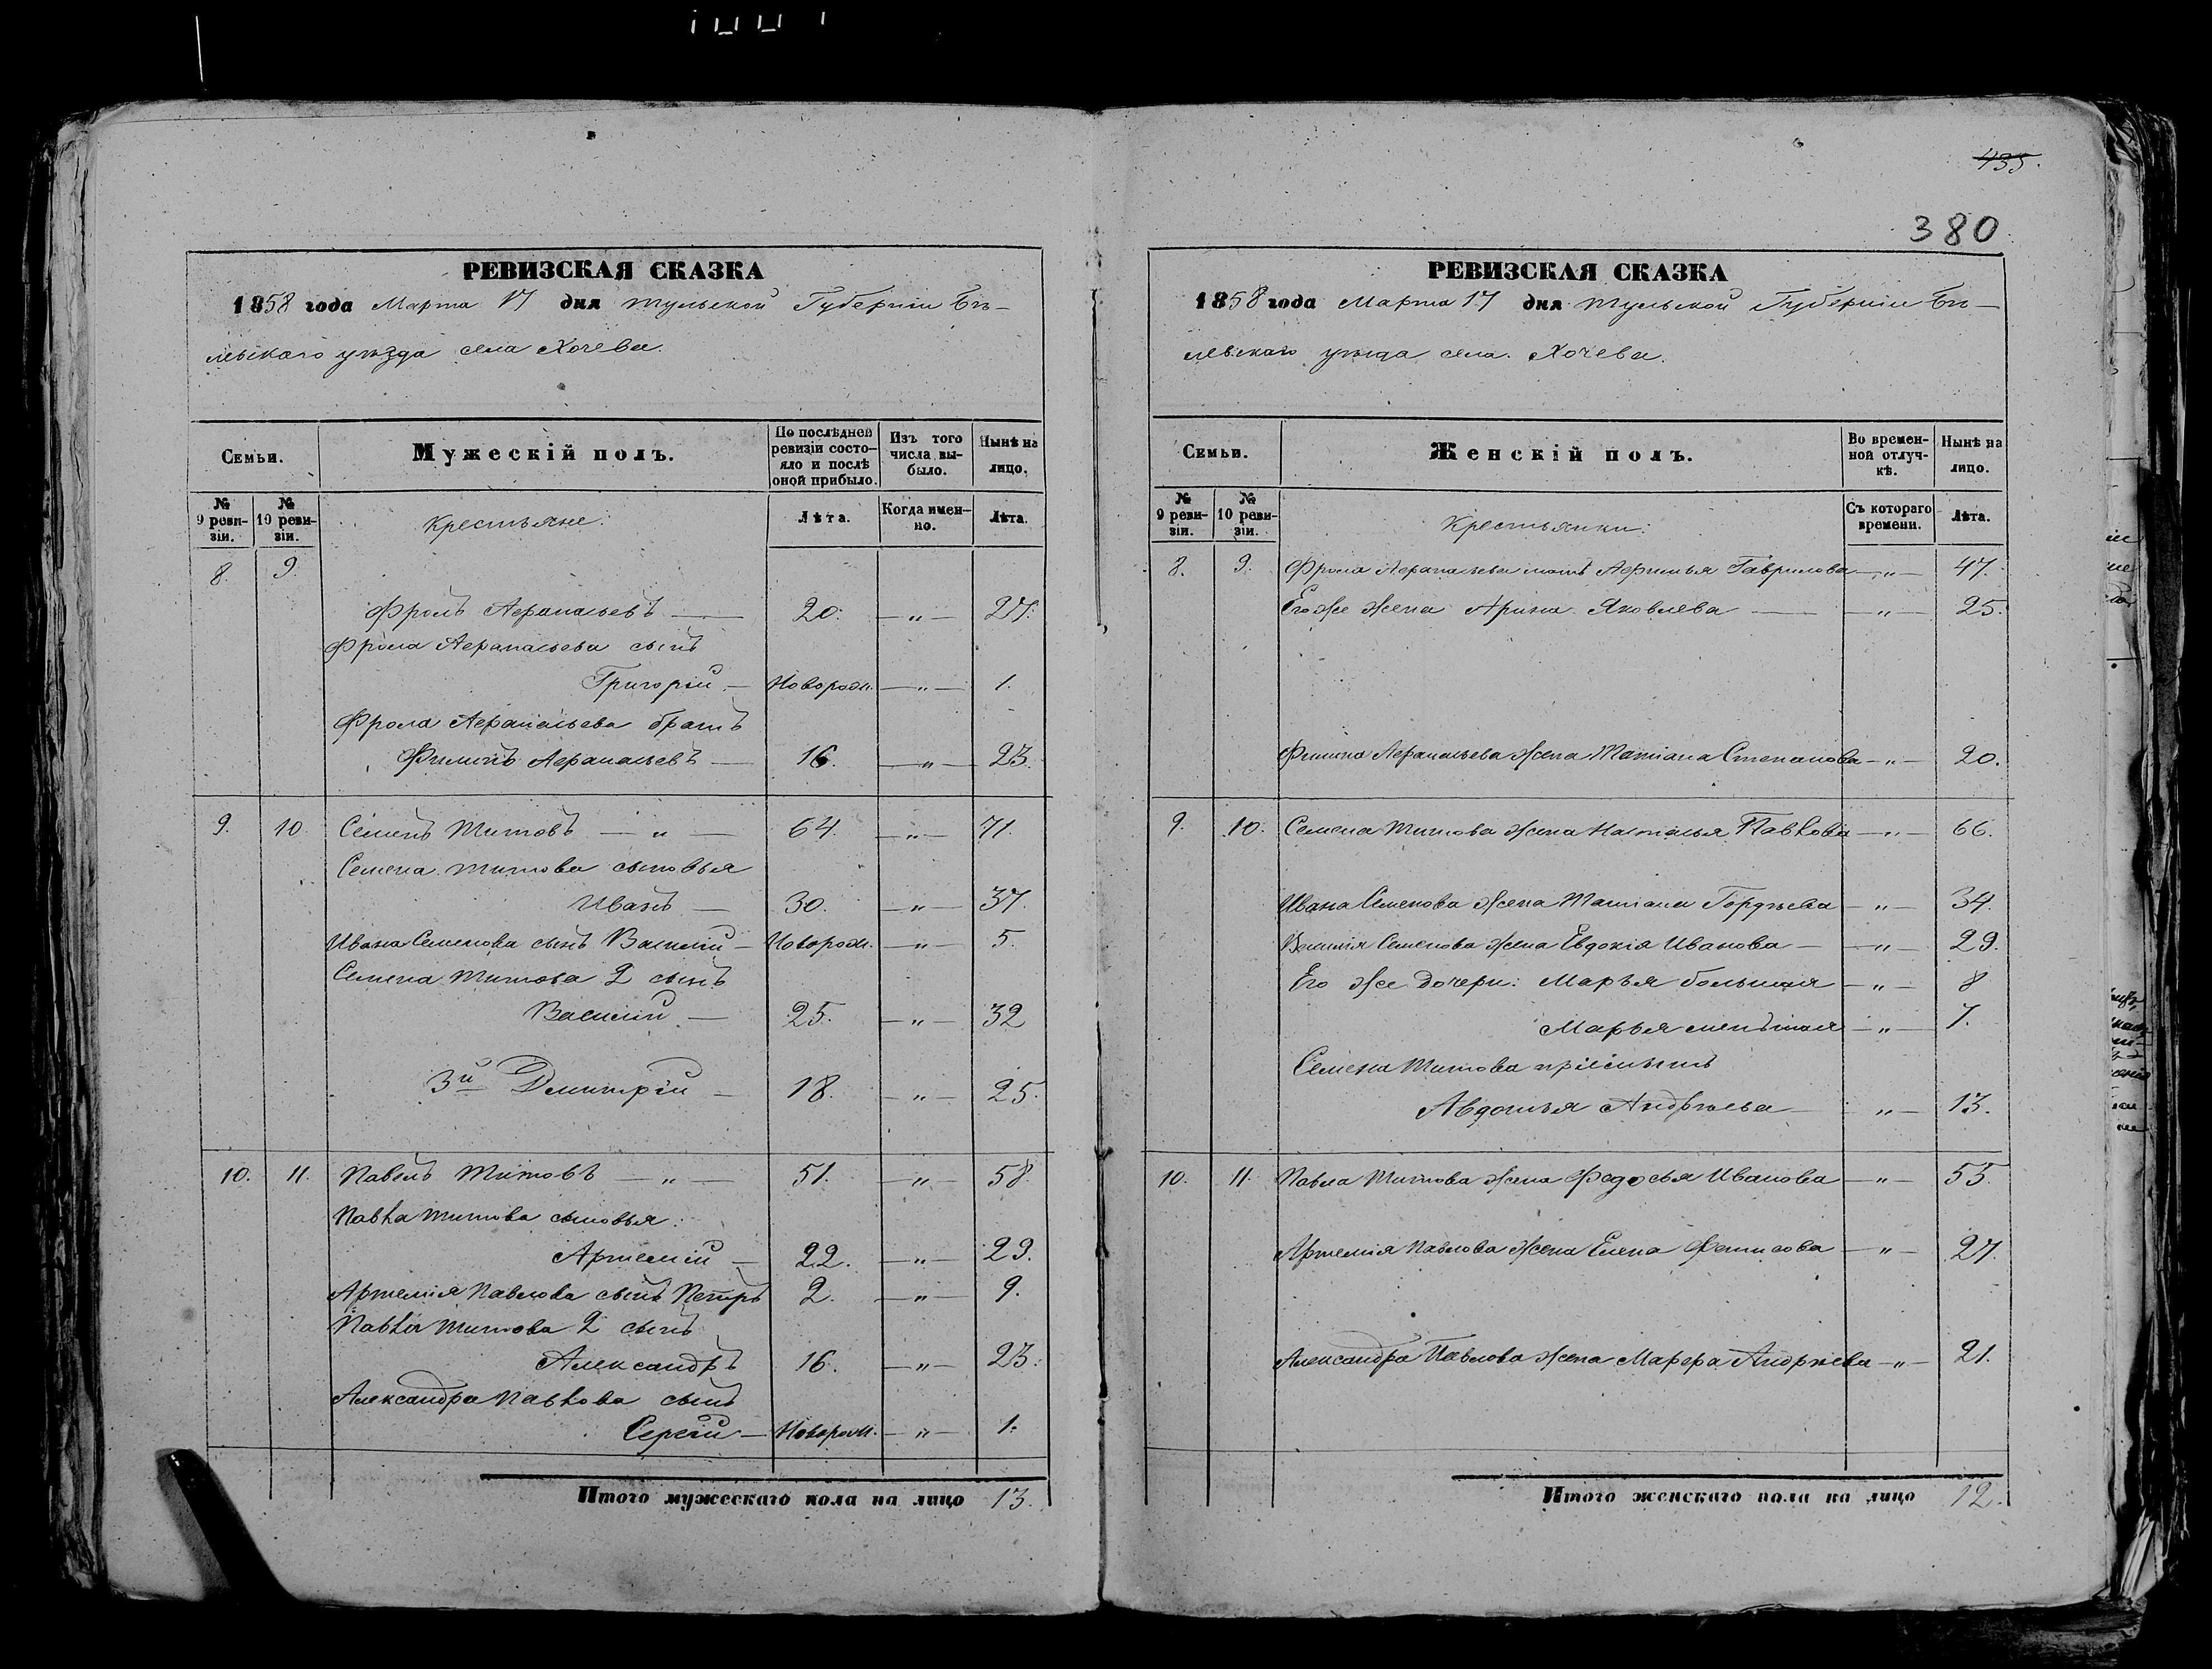 РЕВИЗСКАЯ СКАЗКА
1858 года Марта 17 дня Тульской Губерніи Бѣ-
левскаго уѣзда села Хочева.
Семьи.
Мужескій полъ.
По послѣдней ревизіи состояло и послѣ оной прибыло.
Изъ того числа выбыло.
Нынѣ на лицо.
№ 9 ревизіи.
№ 10 ревизіи.
Крестьяне:
Лѣта.
Когда именно.
Лѣта.
8. 9.
Фролъ Афанасьевъ — 20. —"— 27.
Фрола Афанасьева сынъ
Григорій — Новорожд. —"— 1.
Фрола Афанасьева братъ
Филипъ Афанасьевъ — 16. —"— 23.
9. 10. Семенъ Титовъ —"— 64. —"— 71.
Семена Титова сыновья
Иванъ — 30. —"— 37.
Ивана Семенова сынъ Василій — Новорожд. —"— 5.
Семена Титова 2 сынъ
Василій — 25. —"— 32
3й Дмитрій — 18. —"— 25.
10. 11. Павелъ Титовъ —"— 51. —"— 58.
Павла Титова сыновья:
Артемій — 22. —"— 29.
Артемія Павлова сынъ Петръ 2. —"— 9.
Павла Титова 2 сынъ
Александръ 16. —"— 23.
Александра Павлова сынъ
Сергій — Новорожд. —"— 1.
Итого мужескаго пола на лицо 13.
435.
380
РЕВИЗСКАЯ СКАЗКА
1858 года Марта 17 дня Тульской Губерніи Бѣ-
левскаго уѣзда села Хочева.
Семьи.
Женскій полъ.
Во временной отлучкѣ.
Нынѣ на лицо.
№ 9 ревизіи.
№ 10 ревизіи.
Крестьянки:
Съ котораго времени.
Лѣта.
8. 9. Фрола Афанасьева мать Афимья Гаврилова —"— 47.
Его же жена Арина Яковлева — —"— 25.
Филипа Афанасьева жена Татіана Степанова —"— 20.
9. 10. Семена Титова жена Наталья Павлова —"— 66.
Ивана Семенова жена Татіана Гордѣева —"— 34.
Василія Семенова жена Евдокія Иванова —"— 29.
Его же дочери: Марья большая —"— 8
Марья меньшая —"— 7.
Семена Титова пріемышъ
Авдотья Андрѣева —"— 13.
10. 11. Павла Титова жена Федосья Иванова —"— 55.
Артемія Павлова жена Елена Фетисова —"— 27.
Александра Павлова жена Марфа Андрѣева —"— 21.
Итого женскаго пола на лицо 12.